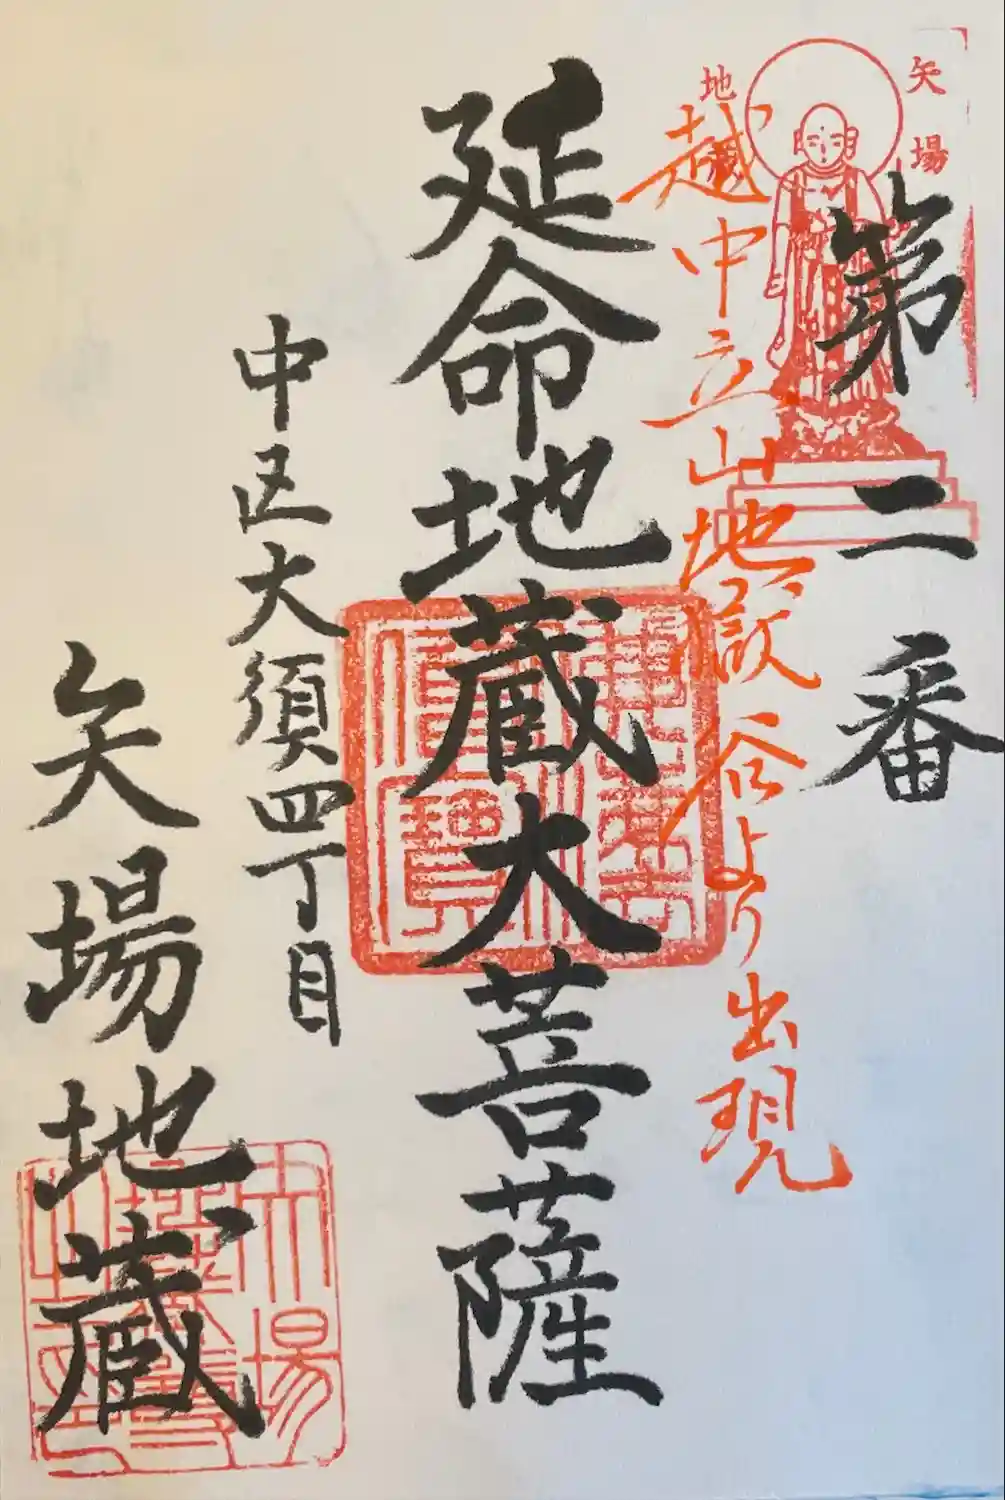 矢場
地蔵
第二番
越中立山地獄谷より出現
延命地蔵大菩薩
中区大須四丁目
矢場地蔵